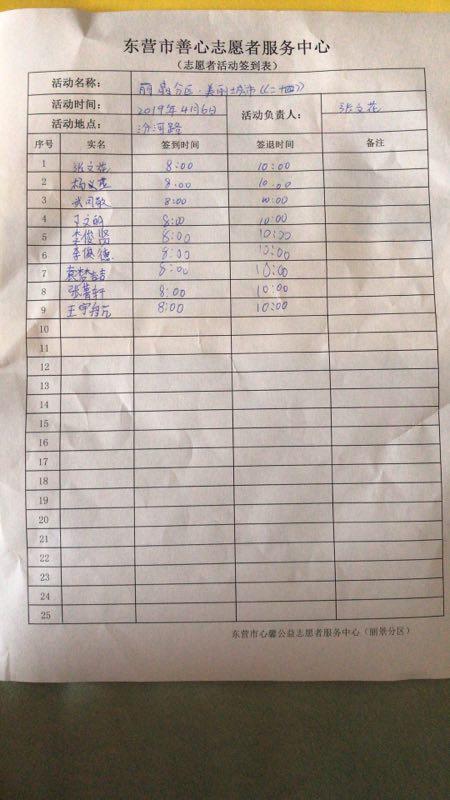 东营市善心志愿者服务中心
（志愿者活动签到表）
活动名称： 丽景分区·美丽城市《二十四》
活动时间： 2019年4月6日 活动负责人： 张文花
活动地点： 汾河路
序号 实名 签到时间 签退时间 备注
1 张文花 8:00 10:00
2 杨义 8:00 10:00
3 武同敏 8:00 10:00
4 丁文明 8:00 10:00
5 李俊贤 8:00 10:00
6 李俱德 8:00 10:00
7 袁梦吉吉 8:00 10:00
8 张馨轩 8:00 10:00
9 王宇翔 8:00 10:00
10
11
12
13
14
15
16
17
18
19
20
21
22
23
24
25
东营市心馨公益志愿者服务中心（丽景分区）